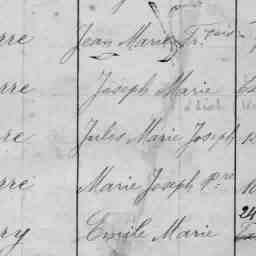 rre Jean Marie Fr.
rre Joseph Marie
rre Jules Marie Joseph
rre Marie Joseph Pre
ry Emile Marie 24